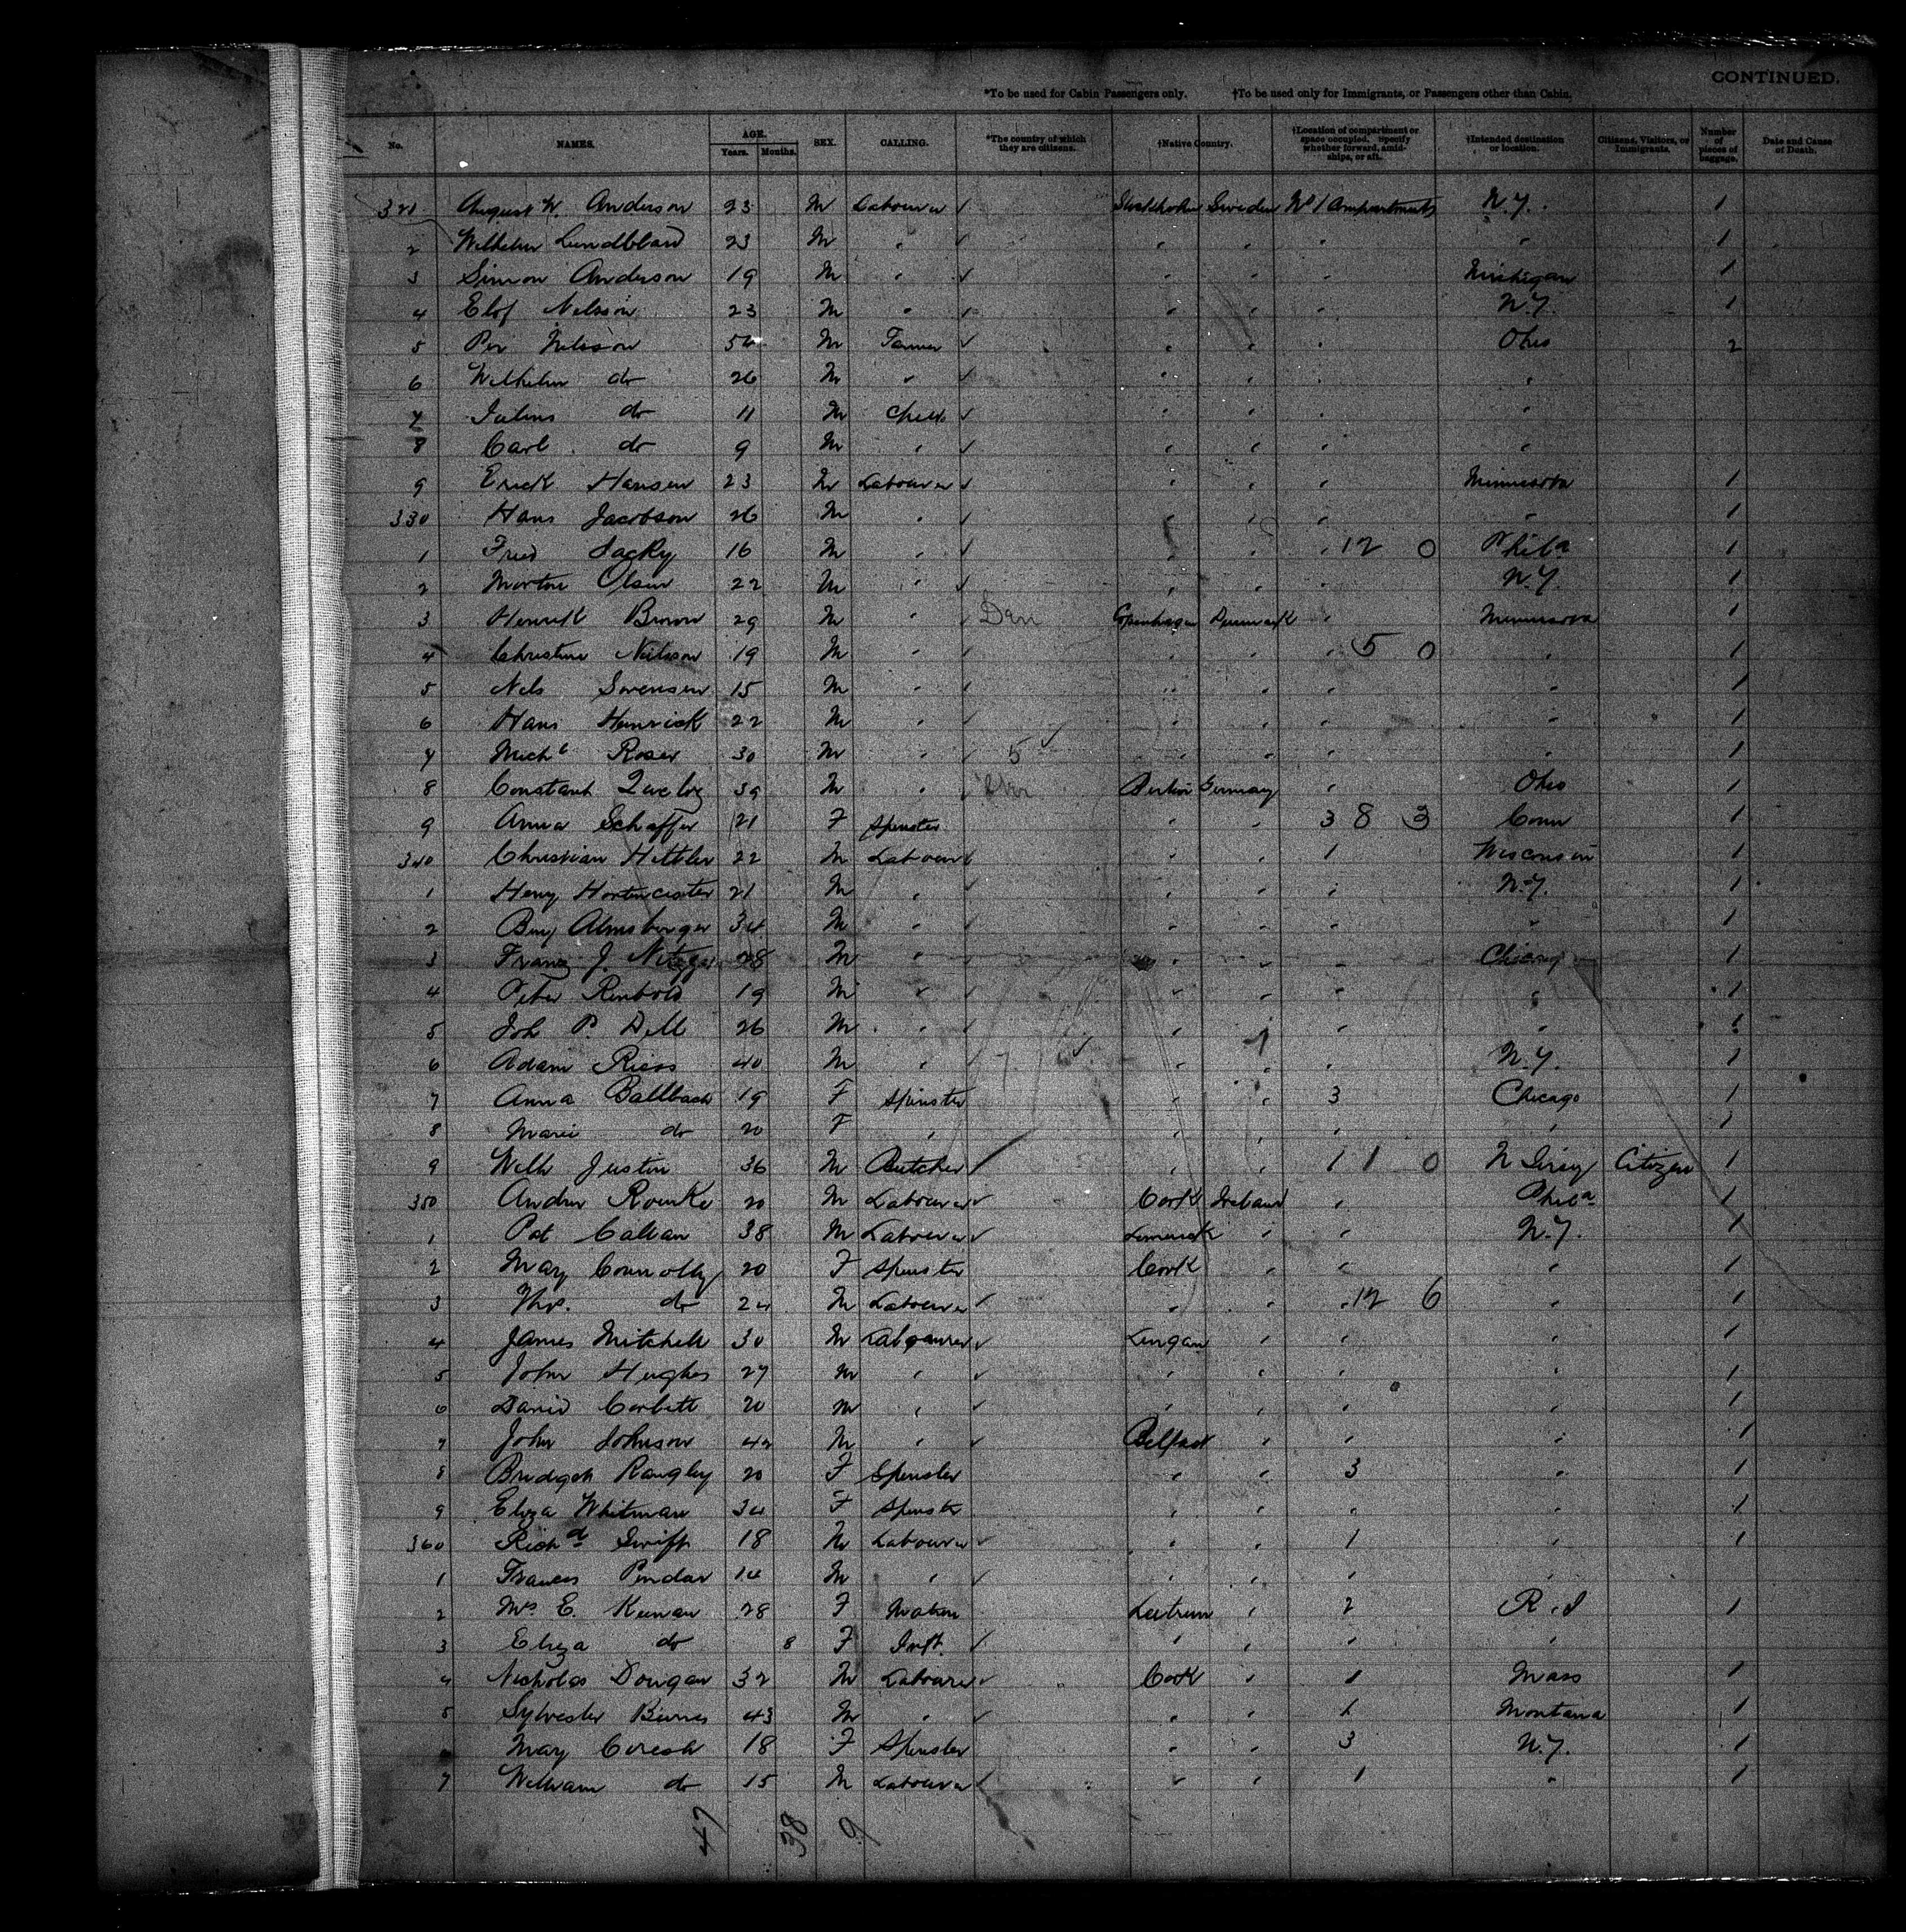 CONTINUED.
*To be used for Cabin Passengers only. †To be used only for Immigrants, or Passengers other than Cabin.
No. NAMES. AGE. Years. Months. SEX. CALLING. *The country of which they are citizens. †Native Country. †Location of compartment or space occupied. Specify whether forward, amidships, or aft. †Intended destination or location. Citizens, Visitors, or Immigrants. Number of pieces of baggage. Date and Cause of Death.
321 August W. Anderson 23 M Labourer Stockholm Sweden No 1 Compartments N.Y. 1
2 Wilhelm Lundblad 23 M " " " " " 1
3 Simon Anderson 19 M " " " " Michigan 1
4 Elof Nelson 23 M " " " " N.Y. 1
5 Per Nilsson 54 M Farmer " " " Ohio 2
6 Wilhelm do 26 M " " " " "
7 Julius do 11 M Child " " " "
8 Carl do 9 M " " " " "
9 Erick Hansen 23 M Labourer " " " Minnesota 1
330 Hans Jacobson 26 M " " " " " 1
1 Fred 16 M " " " " 12 0 Phila 1
2 Morton Olsen 22 M " " " " N.Y. 1
3 Henrik Brown 29 M " Den Copenhagen Denmark " Minnesota 1
4 Christine Neilson 19 M " " " " 5 0 " 1
5 Nels Svensen 15 M " " " " " 1
6 Hans Henrick 22 M " " " " " 1
7 Michl Roser 30 M " 5 " " " " 1
8 Constant 39 M " Berlin Germany " Ohio 1
9 Anna Schaffer 21 F Spinster " " 3 8 3 Conn 1
340 Christian Hettler 22 M Labourer " " 1 Wisconsin 1
1 Henry 21 M " " " " N.Y. 1
2 Benj Almsberger 34 M " " " " " 1
3 Franz J. 28 M " " " " Chicago 1
4 Peter Rinbold 19 M " " " " " 1
5 Joh P. Dell 26 M " " " " " 1
6 Adam Riess 40 M " 7 " " " N.Y. 1
7 Anna Ballbach 19 F Spinster " " 3 Chicago 1
8 Marie do 20 F " " " " " 1
9 Wilh Justin 36 M Butcher " " 1 1 0 N Jersey Citizen 1
350 Andrw Rourke 20 M Labourer Cork Ireland " Phila 1
1 Pat Callan 38 M Labourer Limerick " " N.Y. 1
2 Mary Connolly 20 F Spinster Cork " " " 1
3 Thos. do 24 M Labourer " " " 12 6 " 1
4 James Mitchell 30 M Labourer Lurgan " " " 1
5 John Hughes 27 M " " " " " 1
6 David Corbett 20 M " " " " " 1
7 John Johnson 42 M " Belfast " " " 1
8 Bridget Rangley 20 F Spinster " " 3 " 1
9 Eliza Whitman 34 F Spinster " " " " 1
360 Richd Swift 18 M Labourer " " 1 " 1
1 Frances Pendar 14 M " " " " "
2 Mrs E. Keenan 28 F Matron Leitrim " 2 R.I 1
3 Eliza do 8 F Inft. " " " "
4 Nicholas Dongan 32 M Labourer Cork " 1 Mass 1
5 Sylvester Burns 43 M " " " 1 Montana 1
May 18 F Spinster " " 3 N.Y. 1
7 William do 15 M Labourer " " 1 " 1
47 38 9